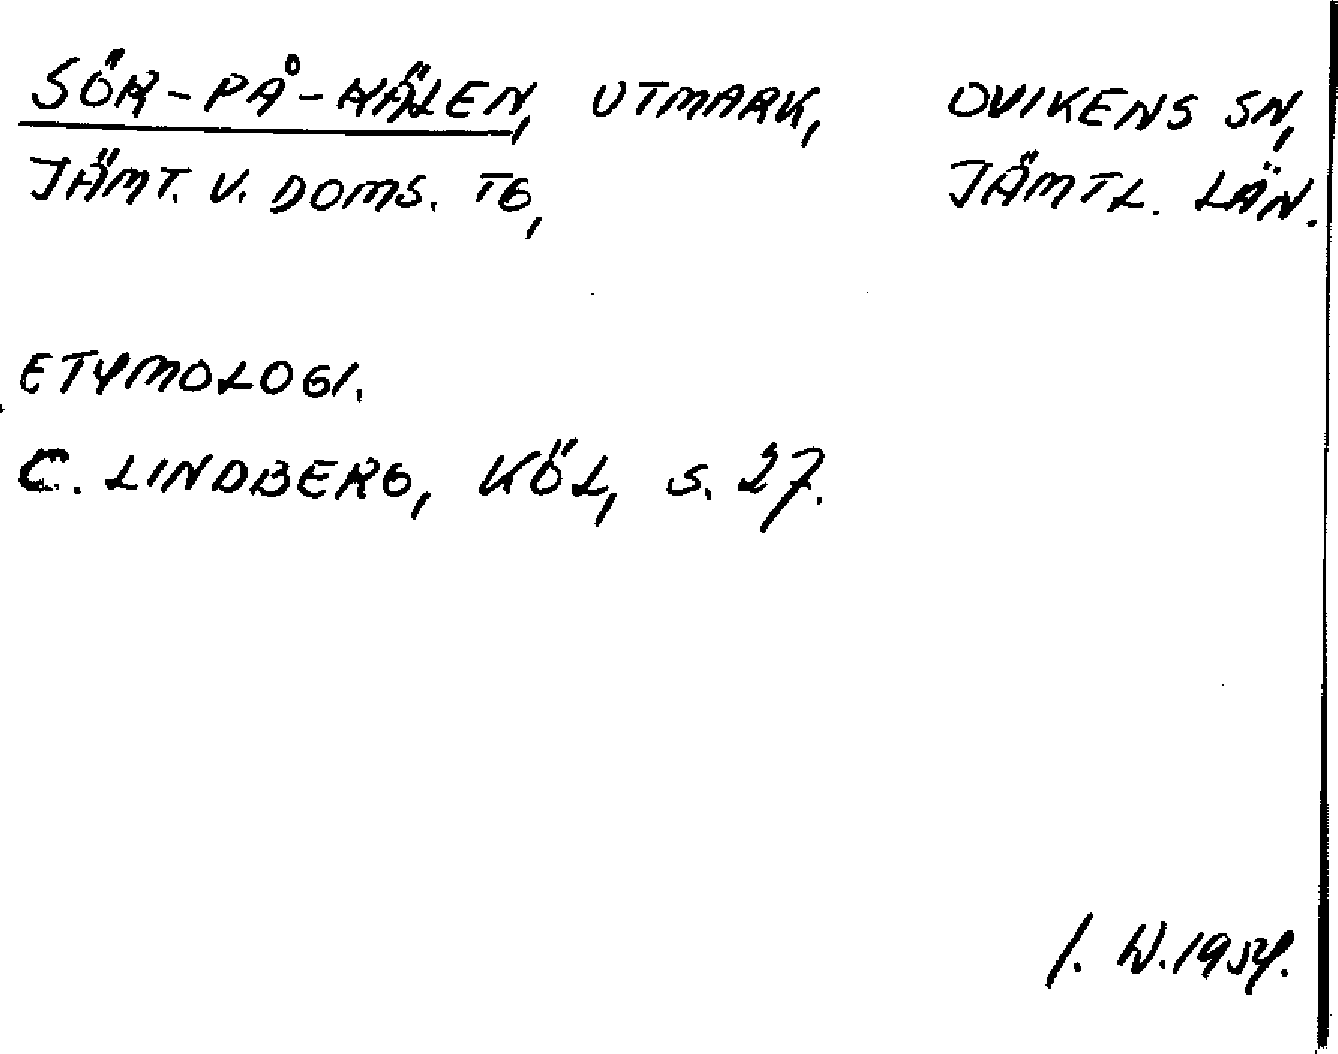 SÖR-PÅ-KÄLEN, UTMARK, OVIKENS SN,
JÄMT. V. DOMS. TG, JÄMTL. LÄN.
ETYMOLOGI.
C. LINDBERG, KÖL, S. 27.
I. W. 1954.